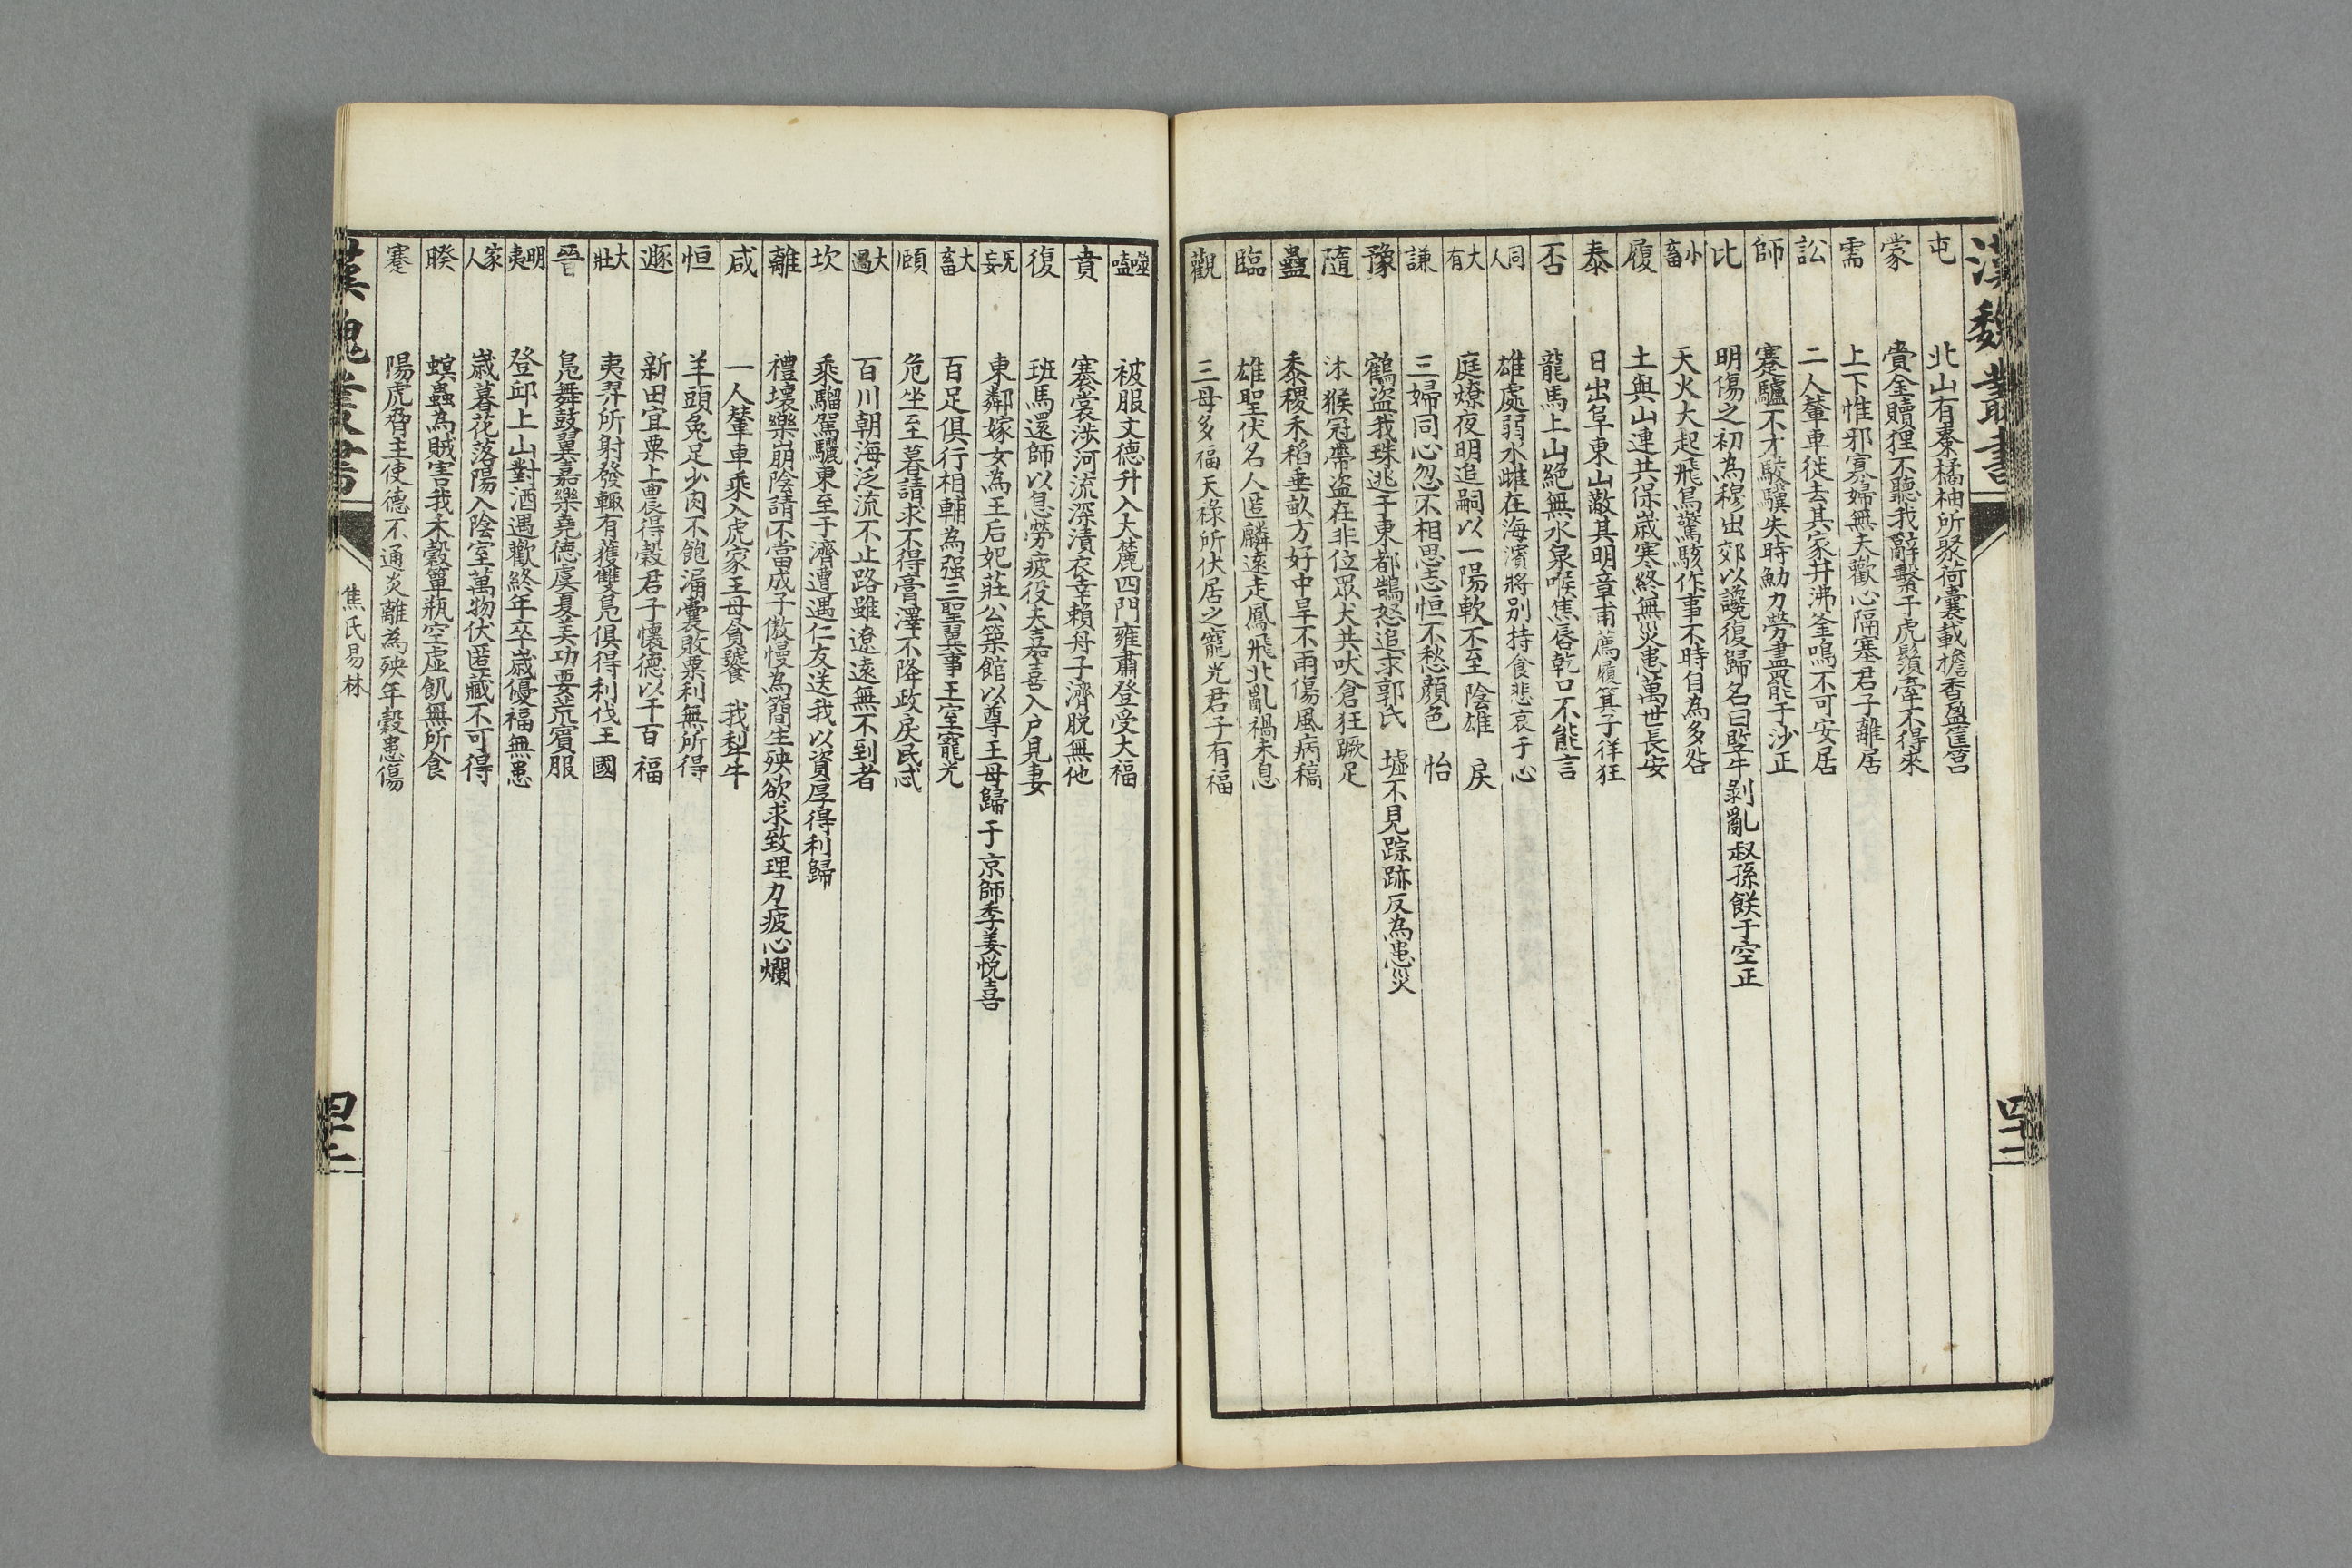 漢魏叢書
屯 北山有棗橘柚所聚荷囊載擔香盈筐筥
蒙 賫金贖狸不聽我辭繫于虎鬚牽不得來
需 上下惟邪寡婦無夫歡心隔塞君子離居
訟 二人輦車徙去其家井沸釜鳴不可安居
師 蹇驢不才駿驥失時觔力勞盡罷于沙正
比 明傷之初為穆出郊以讒復歸名曰豎牛剝亂叔孫餒于空正
小畜 天火大起飛鳥驚駭作事不時自為多咎
履 土與山連共保歲寒終無災患萬世長安
泰 日出阜東山蔽其明章甫薦履箕子徉狂
否 龍馬上山絕無水泉喉焦唇乾口不能言
同人 雄處弱水雌在海濱將別持食悲哀于心
大有 庭燎夜明追嗣以一陽軟不至 陰雄 戾
謙 三婦同心忽不相思志恒不愁顏色 怡
豫 鶴盜我珠逃于東都鵠怒追求郭氏 墟不見踪跡反為患災
隨 沐猴冠帶盜在非位眾犬共吠倉狂蹶足
蠱 黍稷禾稻垂畝方好中旱不雨傷風病稿
臨 雄聖伏名人匿麟遠走鳳飛北亂禍未息
觀 三母多福天祿所伏居之寵光君子有福
四十一
噬嗑 被服文德升入大麓四門雍肅登受大福
賁 褰裳涉河流深漬衣幸賴舟子濟脫無他
復 班馬還師以息勞疲役夫嘉喜入户見妻
无妄 東鄰嫁女為王后妃莊公築館以尊王母歸于京師季姜悅喜
大畜 百足俱行相輔為强三聖翼事王室寵光
頤 危坐至暮請求不得膏澤不降政戾民忒
大過 百川朝海泛流不止路雖遼遠無不到者
坎 乘騮駕驪東至于濟遭遇仁友送我以資厚得利歸
離 禮壞樂崩陰請不當成子傲慢為簡生殃欲求致理力疲心爛
咸 一人輦車乘入虎家王母貪饕 我犁牛
恒 羊頭兔足少肉不飽漏囊敗粟利無所得
遯 新田宜粟上農得穀君子懷德以干百福
大壯 夷羿所射發輒有獲雙鳧俱得利伐王國
晉 鳧舞鼓翼嘉樂堯德虞夏美功要荒賓服
明夷 登邱上山對酒遇歡終年卒歲優福無患
家人 歲暮花落陽入陰室萬物伏匿藏不可得
睽 螟蟲為賊害我禾穀簞瓶空虛飢無所食
蹇 陽虎脅主使德不通炎離為殃年穀患傷
漢魏叢書 焦氏易林 四十二